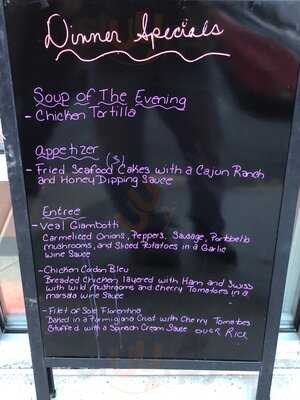 Dinner Specials
Soup of The Evening
- Chicken Tortilla
Appetizer
(s)
- Fried Seafood Cakes with a Cajun Ranch
and Honey Dipping Sauce
Entree
- Veal Giambotti
Carmelized Onions, Peppers, Sausage, Portobello
mushrooms, and Sliced Potatoes in a Garlic
Wine Sauce
- Chicken Cordon Bleu
Breaded Chicken layered with Ham and Swiss
with wild mushrooms and Cherry Tomatoes in a
marsala wine Sauce
- Filet of Sole Florentine
Baked in a Parmigiana Crust with Cherry Tomatoes
Stuffed with a Spinach Cream Sauce over Rice